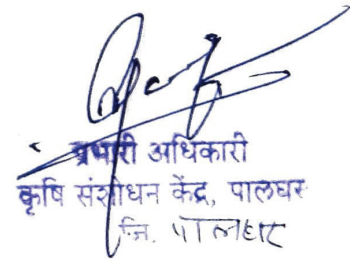 प्रभारी अधिकारी
कृषि संशोधन केंद्र, पालघर
जि. पालघर